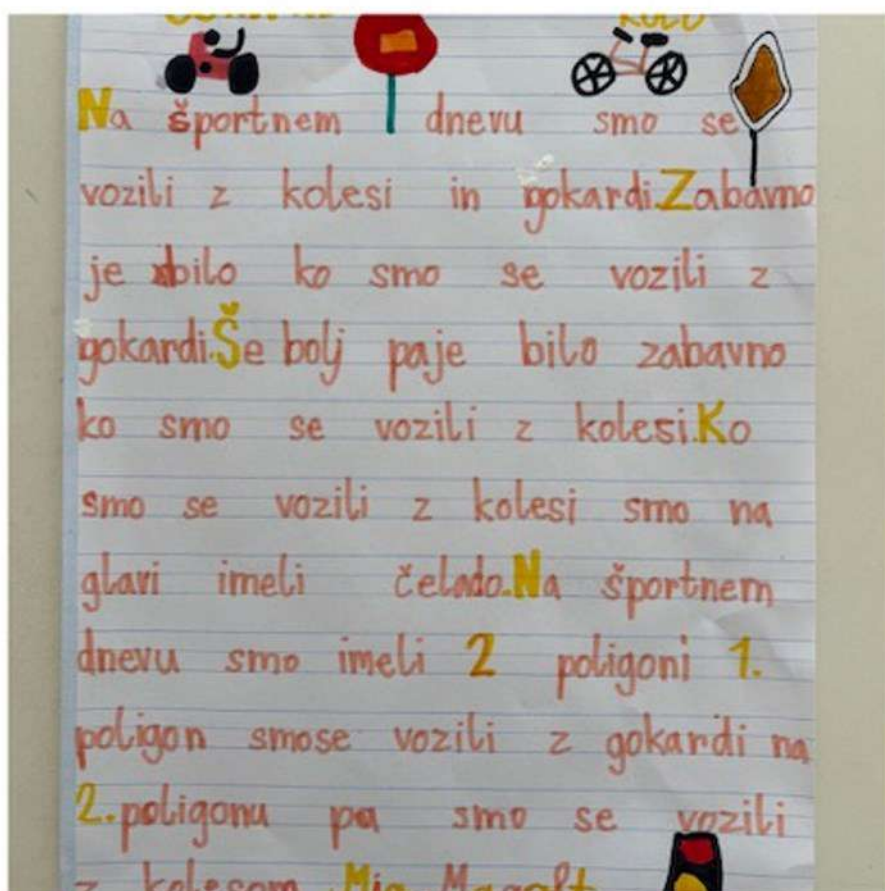 KOLO
Na športnem dnevu smo se
vozili z kolesi in gokardi.Zabavno
je bilo ko smo se vozili z
gokardi.Še bolj paje bilo zabavno
ko smo se vozili z kolesi.Ko
smo se vozili z kolesi smo na
glavi imeli čelado.Na športnem
dnevu smo imeli 2 poligoni 1.
poligon smose vozili z gokardi na
2.poligonu pa smo se vozili
z kolesom Mia